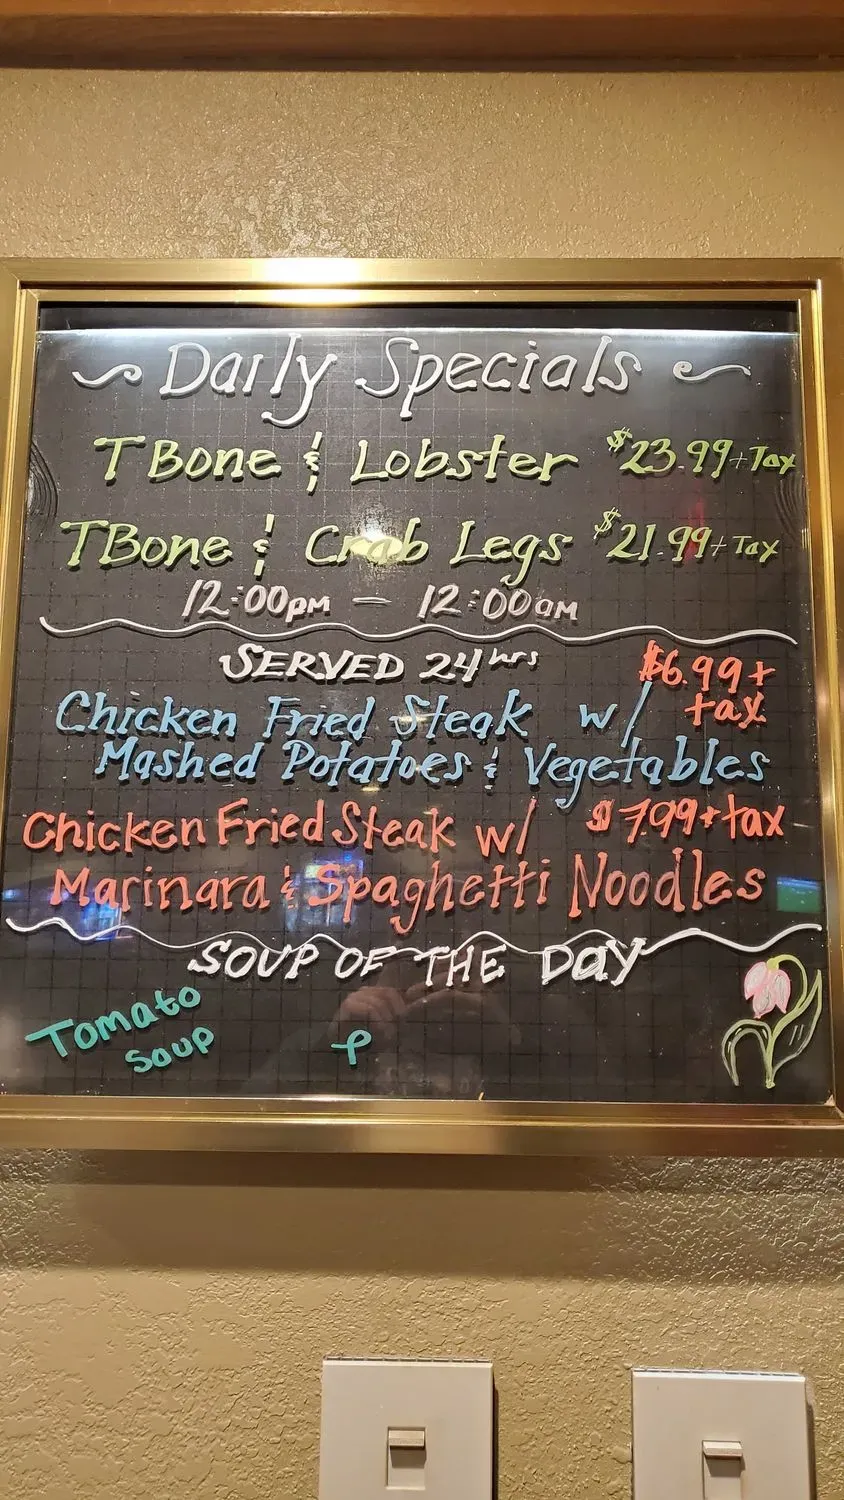 Daily Specials
T Bone & Lobster $23.99 + Tax
TBone & Crab Legs $21.99 + Tax
12:00pm — 12:00am
SERVED 24 hrs $6.99 +
Chicken Fried Steak w/ tax
Mashed Potatoes & Vegetables
Chicken Fried Steak w/ $7.99 + tax
Marinara & Spaghetti Noodles
SOUP OF THE DAY
Tomato
Soup